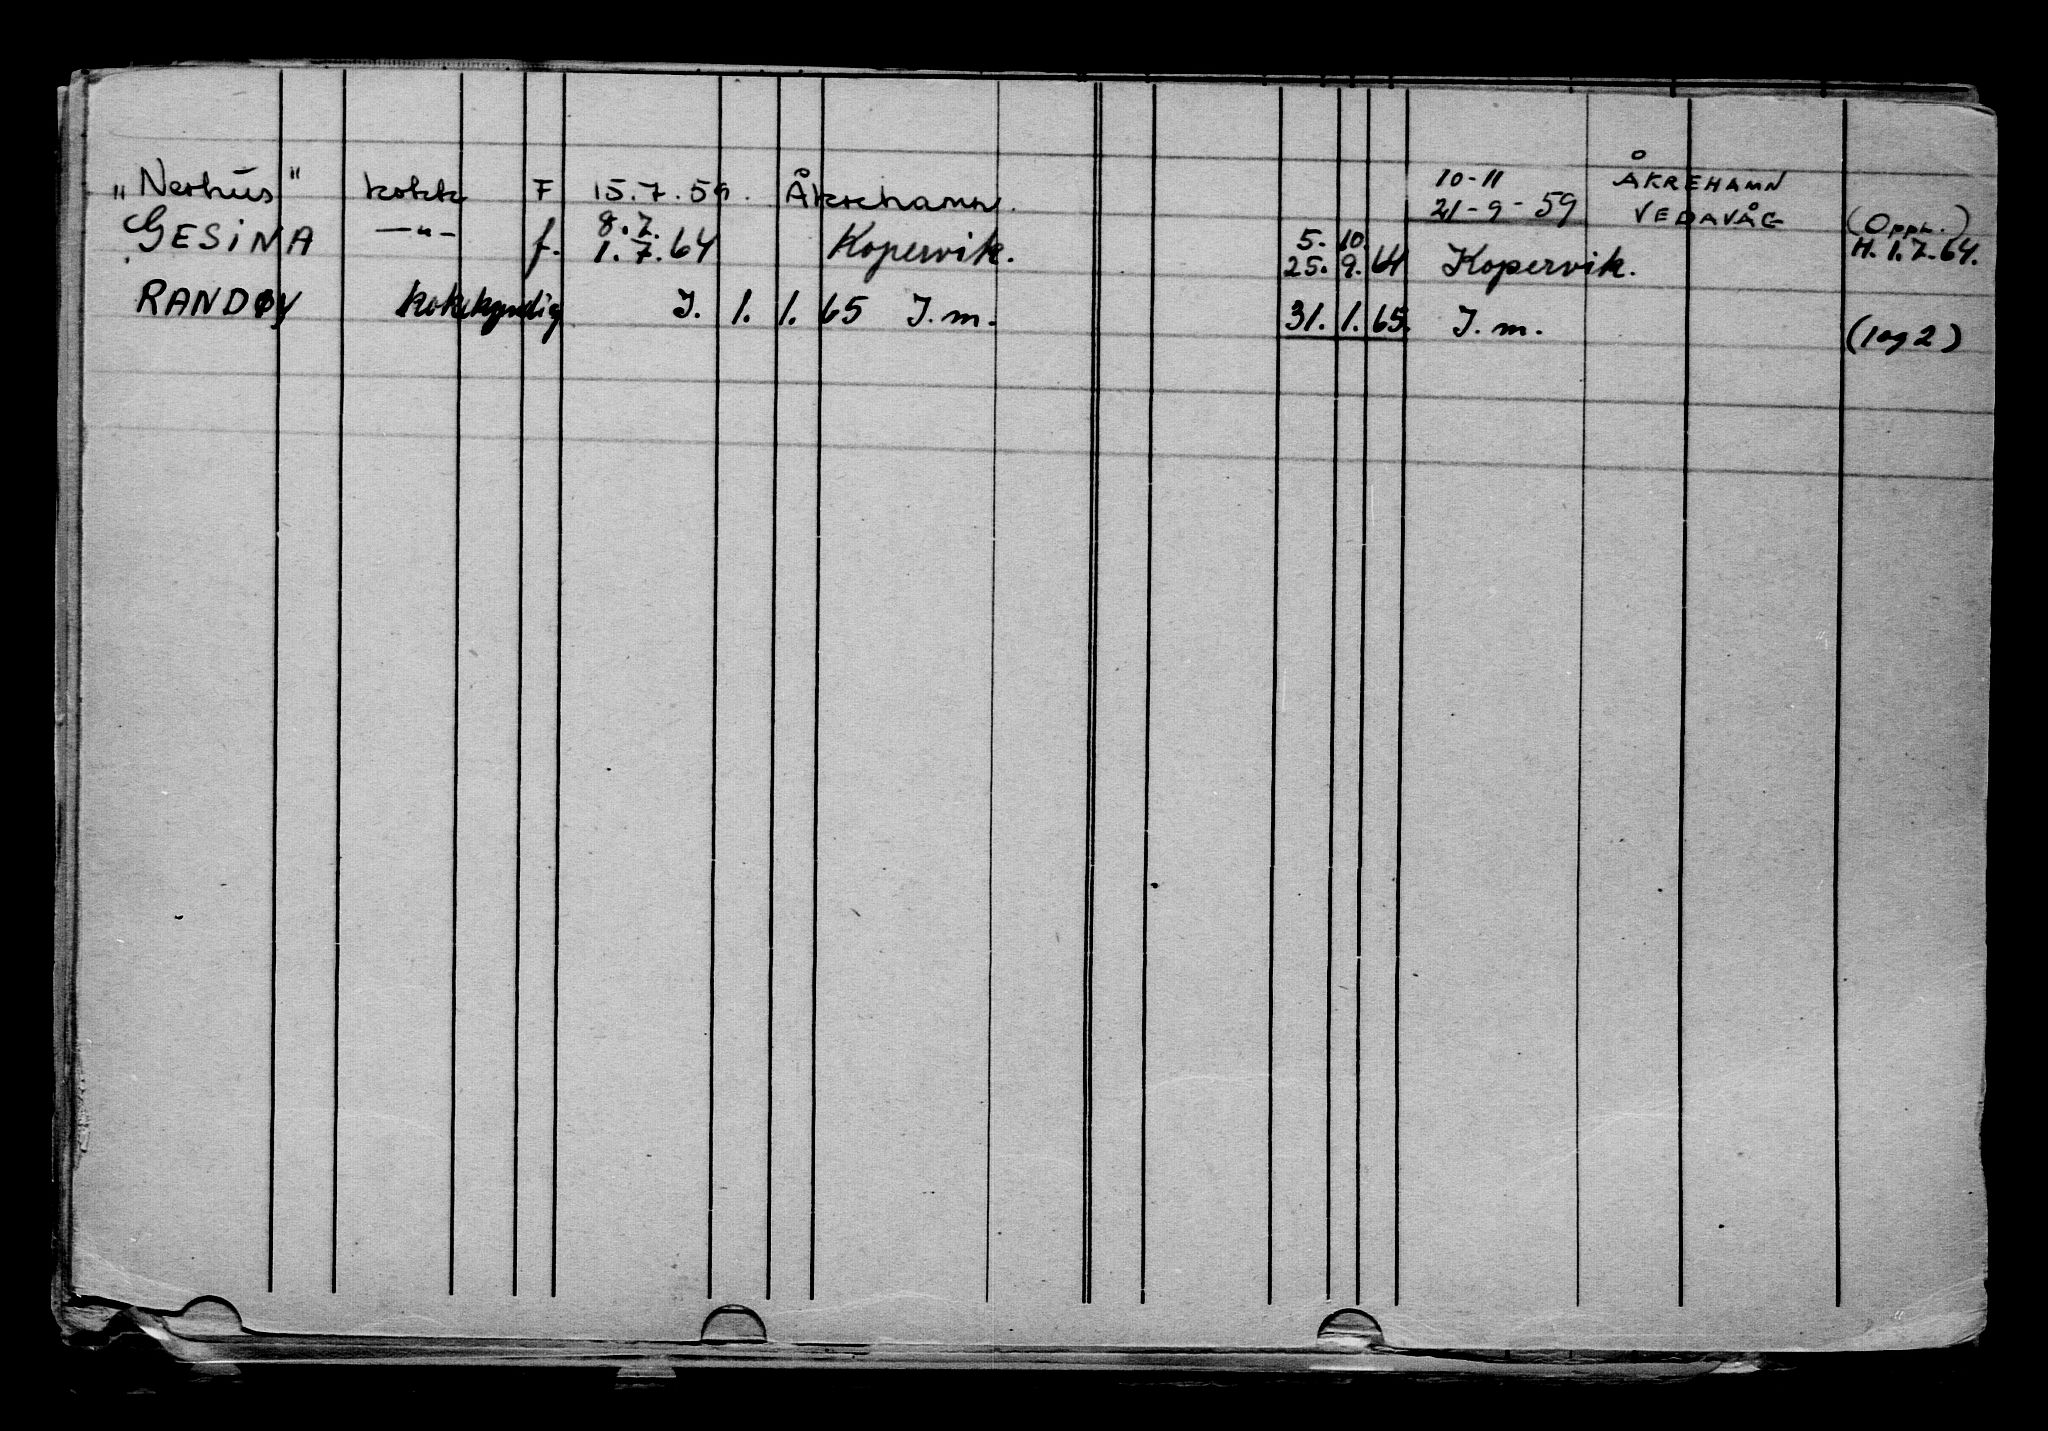 „Nerhus“ kokk F 15.7.59. Åkrehamn. 10-11 21-9-59 ÅKREHAMN VEDAVÅG (Oppr.)
GESINA —"— f. 8.7. 1.7.64 Kopervik. 5. 10. 25. 9. 64 Kopervik. H. 1.7.64.
RANDØY kokkyndig J. 1. 1. 65 J.m. 31. 1. 65. J.m. (1 og 2)